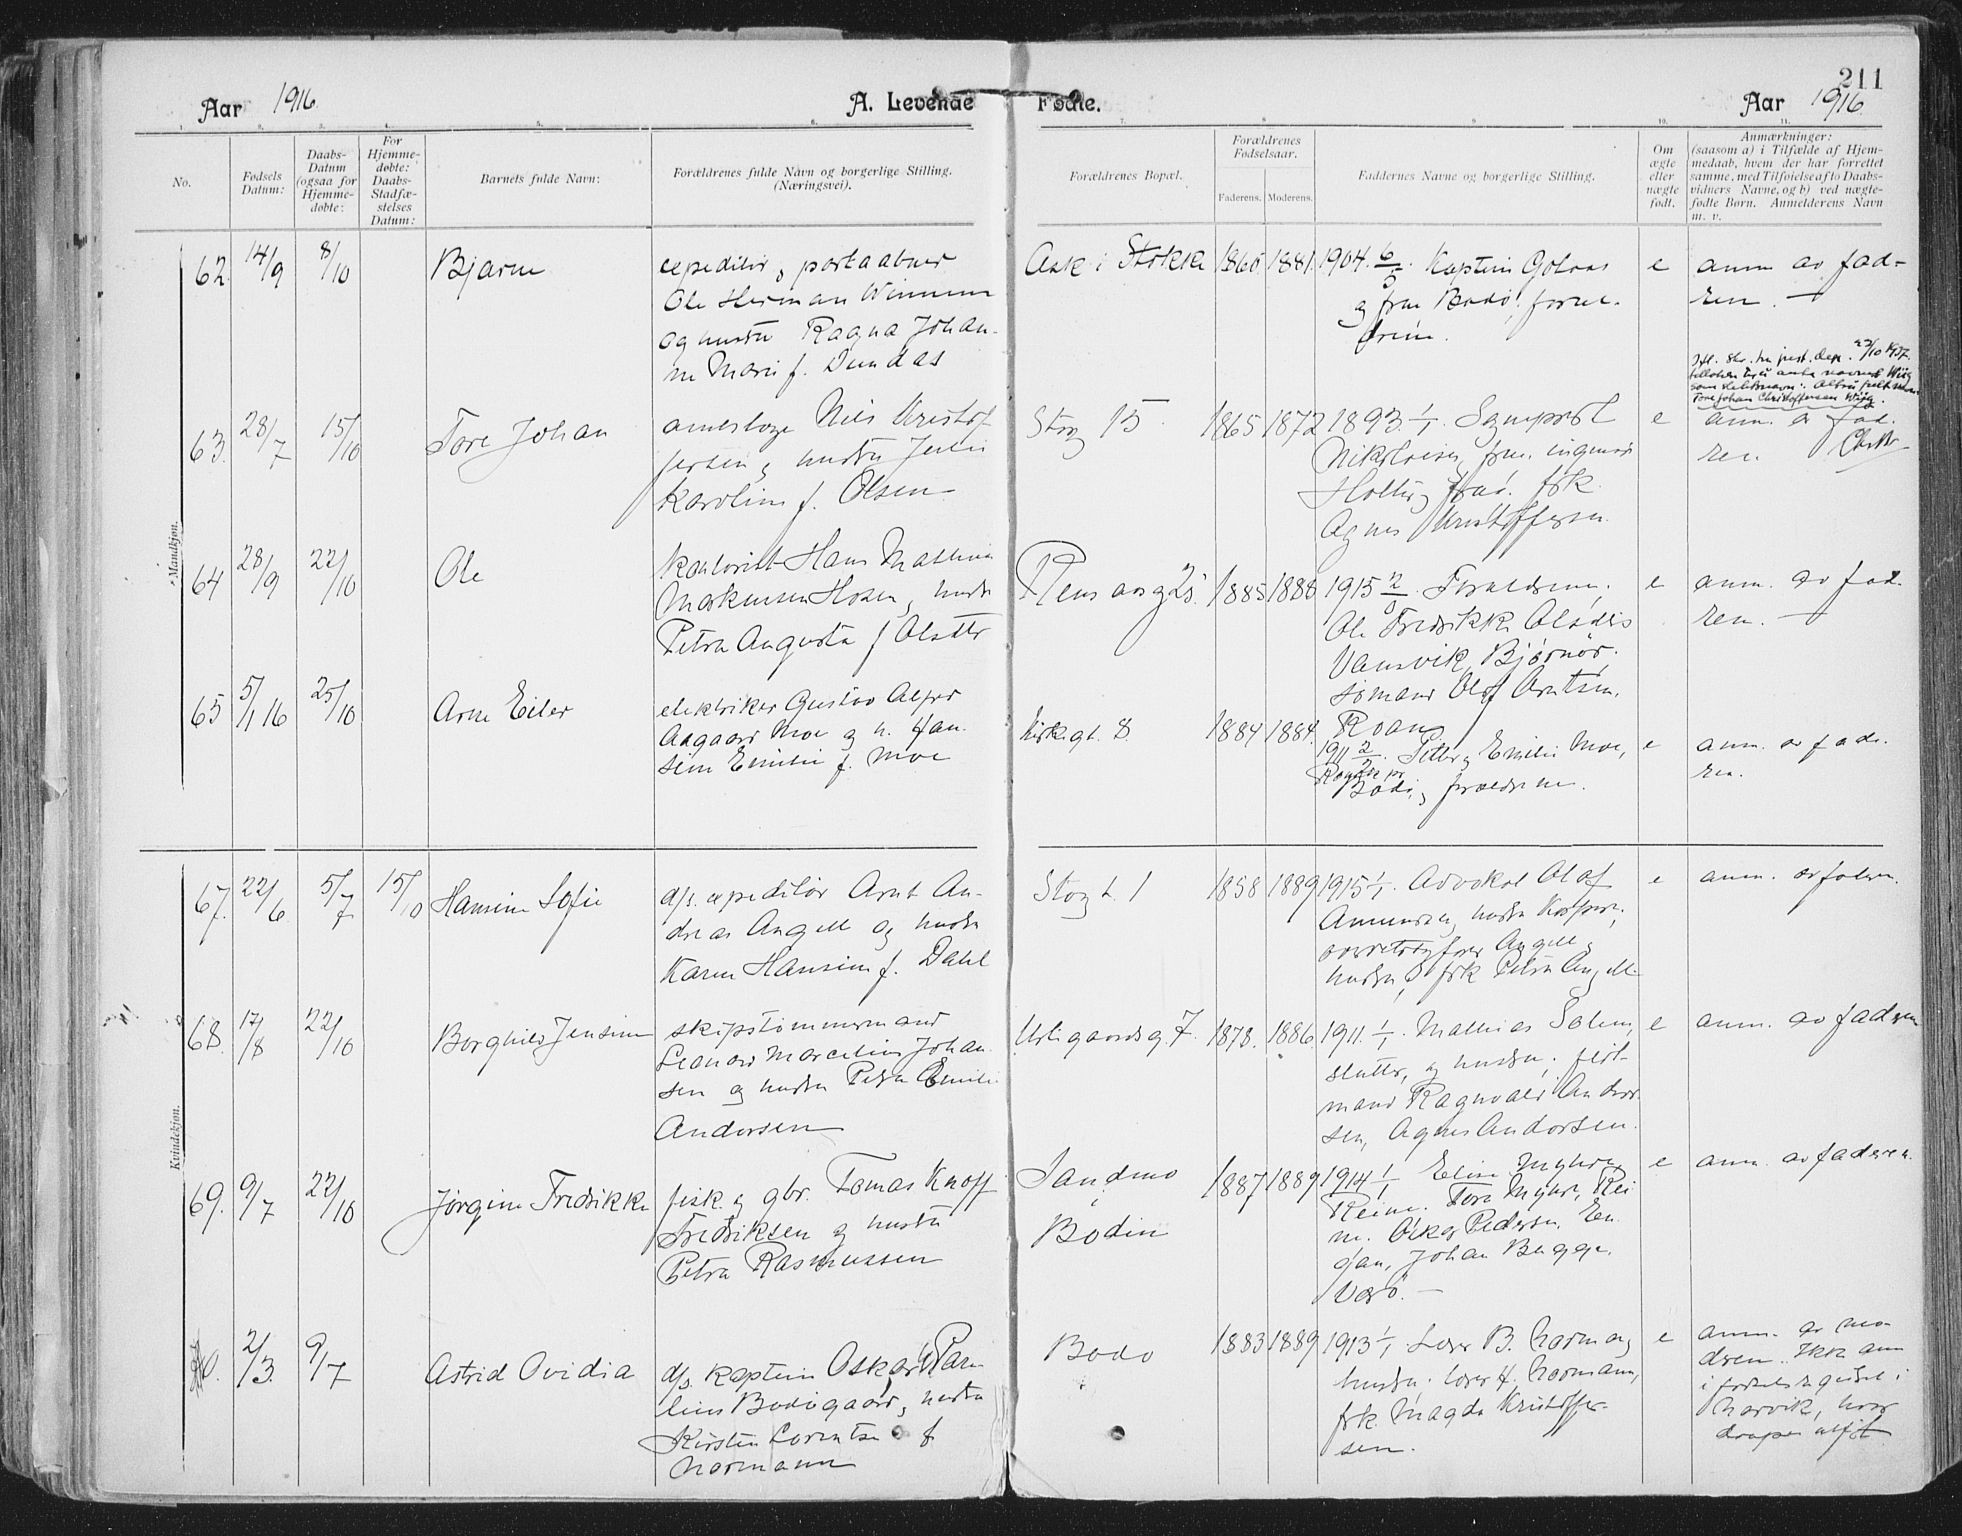 211
Aar 1916 A. Levende Fødte. Aar 1916.
1. 2. 3. 4. 5. 6. 7. 8. 9. 10. 11.
No.
Fødsels
Datum:
Daabs-
Datum
(ogsaa for
Hjemme-
døbte:
For
Hjemme-
døbte:
Daabs-
Stadfæ-
stelses
Datum:
Barnets fulde Navn:
Forældrenes fulde Navn og borgerlige Stilling.
(Næringsvei).
Forældrenes Bopæl.
Forældrenes
Fødselsaar.
Faderens. Moderens.
Faddernes Navne og borgerlige Stilling.
Om
ægte
eller
uægte
født.
Anmærkninger:
(saasom a) i Tilfælde af Hjem-
medaab, hvem der har forrettet
samme, med Tilføielse af to Daabs-
vidners Navne, og b) ved uægte-
fødte Børn. Anmelderens Navn
m. v.
Mandkjøn.
62. 14/9 8/10 Bjarne
expeditør og postaabner
Ole Herman Wimmem
og hustru Ragna Johan-
ne Marie f. Dundas
Ask i Stokke 1860 1881
1904. 6/5. Kaptein
og frue Bodø, foræl-
drene.
e
anm. av fad-
ren. —
63. 28/7 15/10 Tore Johan
Nils Kristof
fersen og hustru
Karoline f. Olsen
Stog 15. 1865 1872
1893. 1/1. Sognprest
Nikolaisen, frue, ingeniør
frk.
Agnes Kristoffersen
e
anm. av fad.
ren.
Tore Johan Christoffersen Wiig.
64 28/9 22/10 Ole
kontorist Hans Mathias
Markussen Hosen og hustru
Petra Augusta f.
1885 1888
1915 Forældrene,
Ole Fredrikke
Vansvik, Bjørnør.
sømand Olaf Arntsen,
Roan
e
anm. av fad.
ren. —
65 5/1 16 25/10 Arne Eiler
elektriker Gustav
Aagaard Moe og h. Han
sine Emilie f. Moe
Kirkegt. 8. 1884 1884.
1911 2/2. Petter og Emilie Moe,
Bodø, forældrene.
e
anm. av fade.
ren.
Kvindekjøn.
67. 22/6 5/7 15/10 Hansine Sofie
d/s. expeditør Arnt An-
dreas Angell og hustru
Karen Hansine f. Dahl
Stogt. 1 1858 1889
1915 1/1. Advokat Olaf
Amundsen, hustru
overretssagfører Angell og
hustru, frk Petra Angell
e
anm. av faderen.
68. 17/8 22/10 Borghild Jensine
skipstømmermand
Leonard Marcelius Johan
sen og hustru Petra Emilie
Andersen
1878. 1886.
1911. 1/1. Mathias Salen,
og hustru,
mand Ragnvald Ander
sen, Agnes Andersen.
e
anm. av faderen
69. 9/7 22/10 Jørgine Fredrikke
fisk. og gbr. Tomas Knoff
Fredriksen og hustru
Petra Rasmussen
Sandmo
i
Bodin
1887 1889
1914 1/1 Eline Myhre,
Reine. Tora Myhre, Rei
ne. Oskar Pedersen, En
gan, Johan Bugge.
Værø. —
e
anm. av faderen.
70. 2/3. 9/7 Astrid Ovidia
d/s. kaptein Oskar
Bodøgaard, og hustru
Kirsten Lorentse f
Normann
Bodø 1883 1889
1913 1/1. Lærer B. Normann og
hustru. lærer H. Normann,
frk. Magda Kristoffer-
sen.
e
anm. av mo-
dren. Ikke anm
i fødselsregistret i
Narvik, hvor